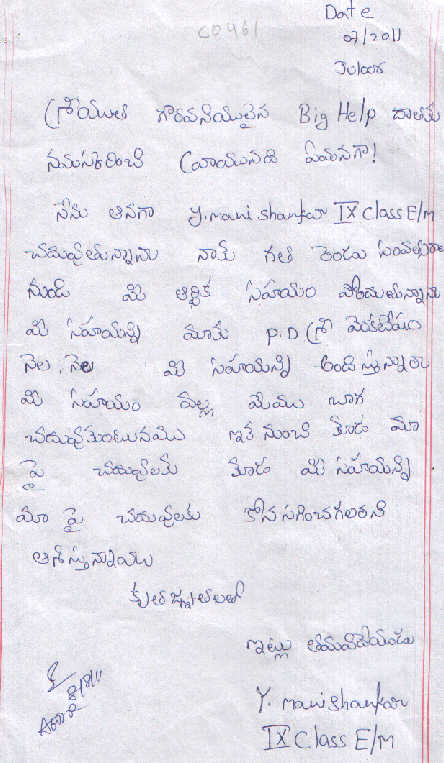 C0961
Date
07/2011
Tuloor
శ్రీయుత గౌరవనీయులైన Big Help దాతకు
నమసకరించి వ్రాయునది ఏమనగా!
నేను అనగా Y. mani shankar IX class E/M
చదువుతున్నాను నాకు గత రెండు సంవత్సరాల
నుండి మి ఆర్థిక సహయం పోందుతున్నాను
మి సహయన్ని మాకు P.D శ్రీ
నెల, నెల మి సహయన్ని అందిస్తున్నారు
మి సహయం వల్ల మేము బాగ
చదువుకుంటునము ఇక నుంచి కూడ మా
పై చదువులకు కూడ మి సహయన్ని
మా పై చదువులకు కోనసగించగలరని
ఆశిస్తున్నాము
కృతజ్ఞతలతో
ఇట్లు తమవిదేయుడు
Y. mani shankar
IX Class E/M
8/8/11